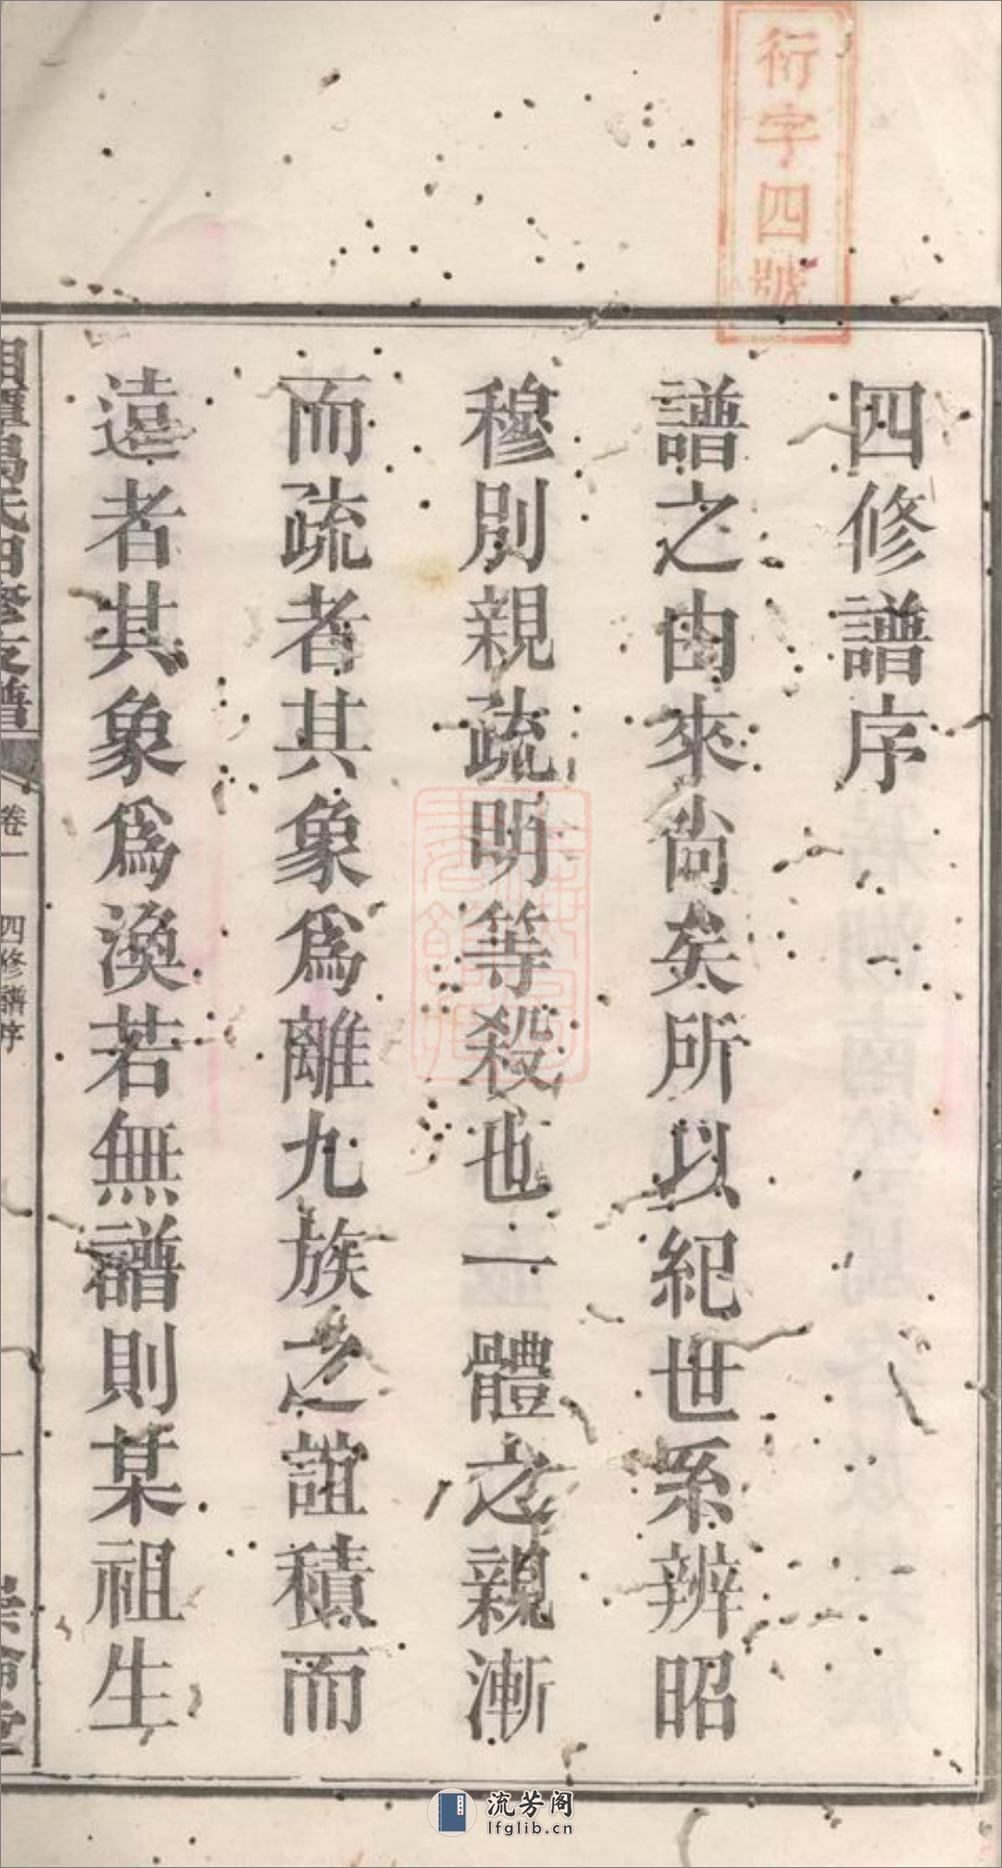 衍字四號
四修譜序
譜之由來尙矣所以紀世系辨昭
穆別親疏明等殺也一體之親漸
而疏者其象爲離九族之誼積而
遠者其象爲渙若無譜則某祖生
四修
譜
卷一
四修譜序
一
流芳阁
lfglib.cn